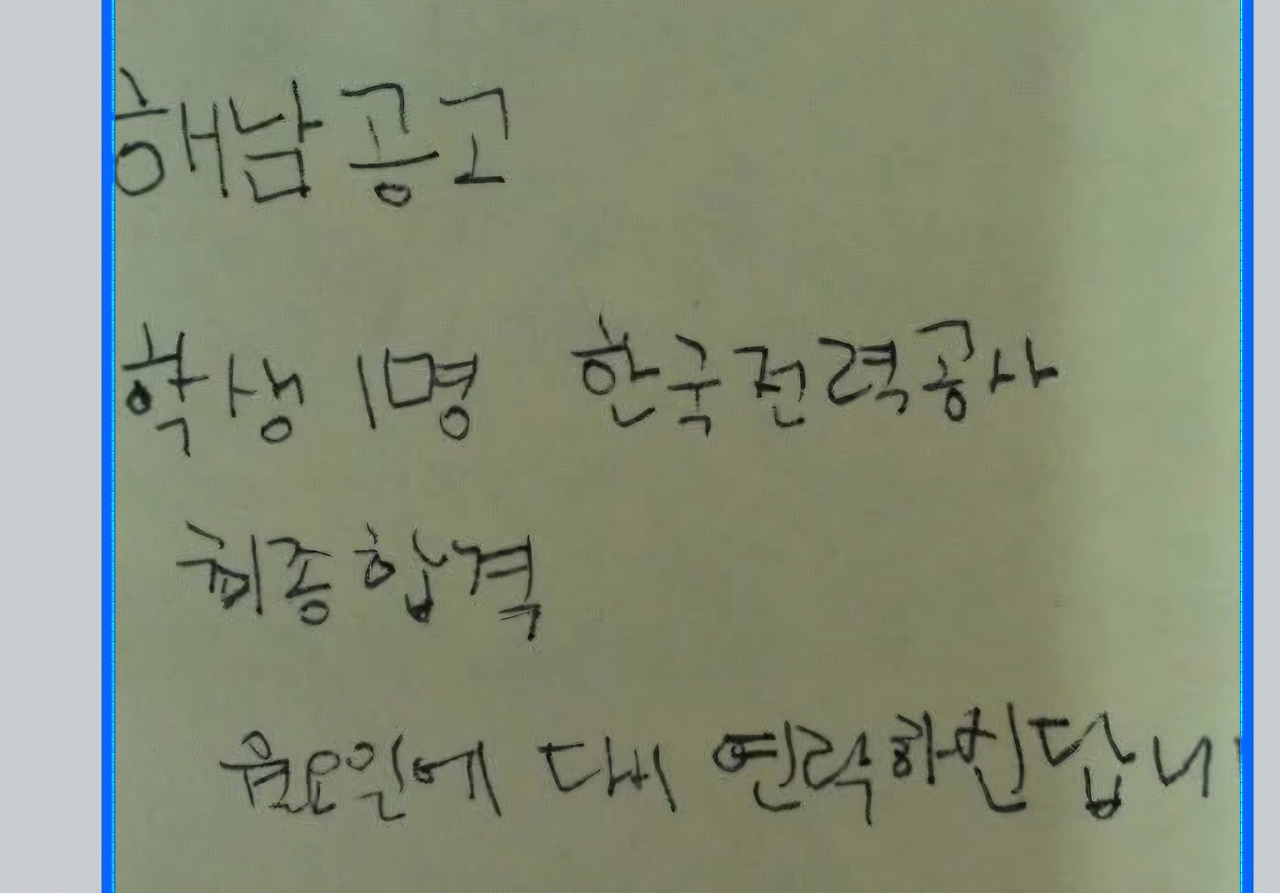 해남공고
학생 1명 한국전력공사
최종합격
월요일에 다시 연락하신답니